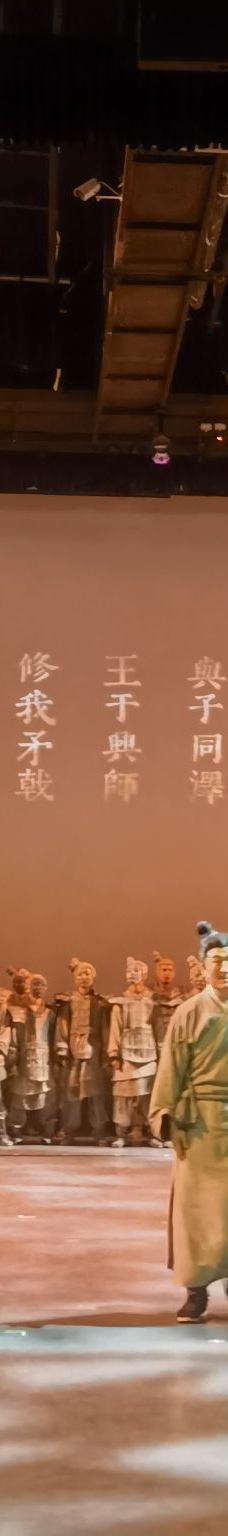 與子同澤
王于興師
修我矛戟